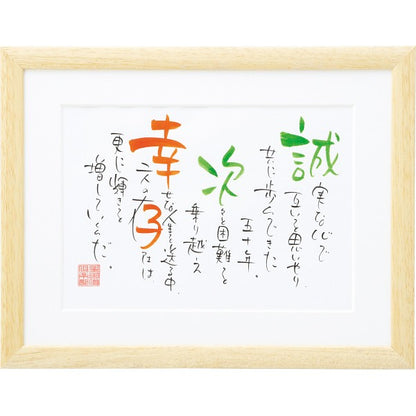 誠実な心で
互いを思いやり
共に歩んできた
五十年。
次々と困難を
乗り越え
幸せな人生を送る中、
二人の存在は
更に輝きを
増していくんだ。